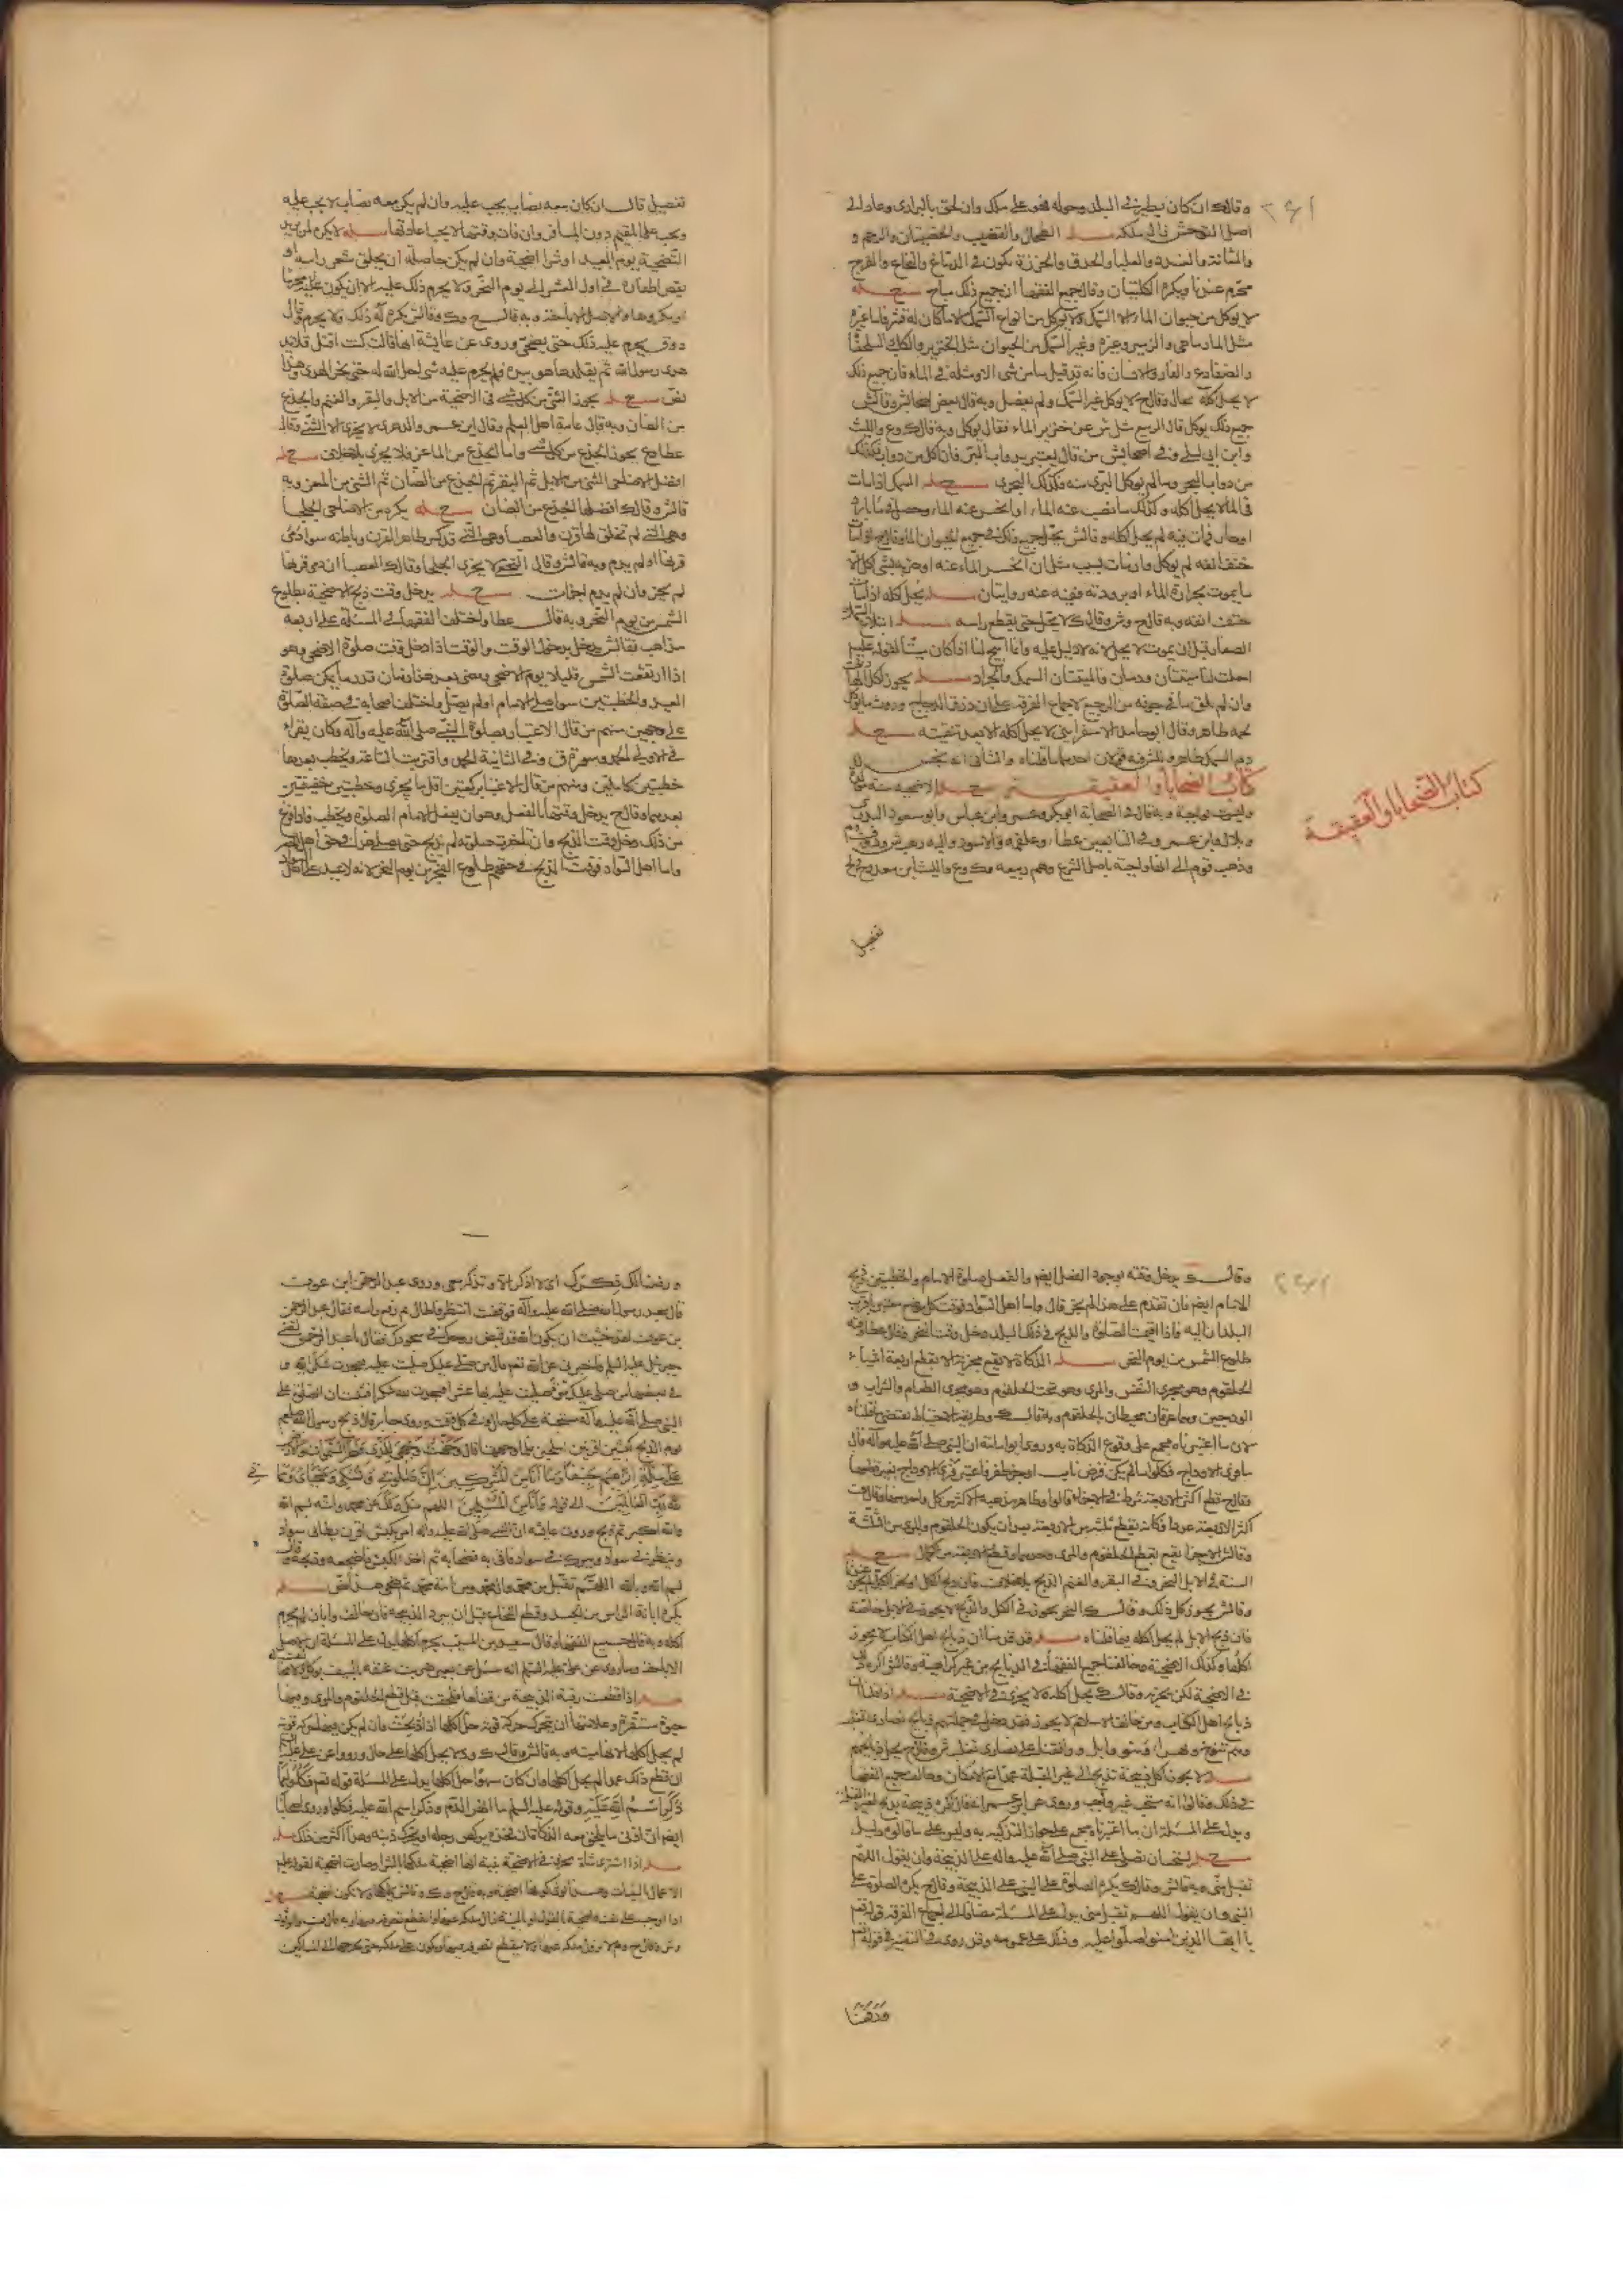 وقال ك ان كان يطير في البلد وحوله فهو على ملكه وان لحق بالبراري وعاد الى
اصل التوحش زال ملكه مسـله الطحال والقضيب والخصيتان والرحم و
والمثانة والغدد والعلبا والحدق والخرزة تكون في الدماغ والنخاع والفرج
محرم عندنا ويكره الكليتان وقال جميع الفقها ان جميع ذلك مباح مسـله
لا يوكل من حيوان الماء الا السمك ولا يوكل من انواع السمك الا ما كان له قشر فاما غيره
مثل المارماهي والزمير وغيره وغير السمك من الحيوان مثل الخنزير والكلب والسلحفا
والضفادع والفار والانسان فانه قد قيل ما من شي الا ومثله في الماء فان جميع ذلك
لا يحل اكله بحال وقال ح لا يوكل غير السمك ولم يفصل وبه قال بعض اصحاب ش وقال ش
جميع ذلك يوكل قال الربيع سئل ش عن خنزير الماء فقال يوكل وبه قال ك وع والليث
وابن ابي ليلى وفي اصحاب ش من قال يعتبر بدواب البر فان اكل من دواب البر فكذلك
من دواب البحر وما لم يوكل البري منه فكذلك البحري مسـله السمك اذا مات
في الماء لا يحل اكله وكذلك ما نضب عنه الماء او انحسر عنه الماء وحصل في ماء بارد
او حار فمات فيه لم يحل اكله وقال ش يحل جميع ذلك في جميع حيوان الماء وقال ح اذا مات
حتف انفه لم يوكل وان مات بسبب مثل ان انحسر الماء عنه او ضربه بشي اكل الا
ما يموت بحرارة الماء او برودته ففيه عنه روايتان مسـله يحل اكله اذا مات
حتف انفه وبه قال ح وش وقال ك لا يحل حتى يقطع راسه مسـله ابتلاع السمك
الصغار قبل ان يموت لا يحل لانه لا دليل عليه وانما ابيح لنا اذا كان ميتا لقوله عليه
احلت لنا ميتتان ودمان فالميتتان السمك والجراد مسـله يجوز اكل
وان لم يلق ما في جوفه من الرجيع لاجماع الفرقة على ان ذرق الدجاج وروث ما يوكل
لحمه طاهر وقال ابو حامد الاسفرايني لا يحل اكله الا بعد تنقيته مسـله
دم السمك طاهر وللش فيه قولان احدهما ما قلناه والثاني انه نجس
كتاب الضحايا والعقيقة مسـله الاضحية سنة موكدة
وليست بواجبة وبه قال في الصحابة ابو بكر وعمر وابن عباس وابو مسعود البدري
وبلال وابن عمر وفي التابعين عطاء وعلقمة والاسود واليه ذهب ش
وذهب قوم الى انها واجبة باصل الشرع وهم ربيعة وك وع والليث ابن سعد وح
كتاب الضحايا والعقيقة
تفصيل
تفصيل قال ان كان معه نصاب يجب عليه وان لم يكن معه نصاب لا يجب عليه
ويجب على المقيم دون المسافر وان فات وقتها لا يجب اعادتها مسـله لا يكره لمن يريد
التضحية يوم العيد او شرا اضحية وان لم يكن حاصلة ان يحلق شعر راسه او
يقص اظفاره في اول العشر الى يوم النحر ولا يحرم ذلك عليه الا ان يكون
هدي رسول الله ثم يقلدها هو بيده ولم يحرم عليه شي احل الله له حتى نحر الهدي وهذا
نص مسـله يجوز الثني من كل شي في الاضحية من الابل والبقر والغنم والجذع
من الضان وبه قال عامة اهل العلم وقال ابن عمر والزهري لا يجزي الا الثني وقال
عطا وع يجوز الجذع من كل شي واما الجذع من الماعز فلا يجزي بلا خلاف مسـله
افضل الاضاحي الثني من الابل ثم البقر ثم الجذع من الضان ثم الثني من المعز وبه
قال ش وقال ك افضلها الجذع من الضان مسـله يكره من الاضاحي الجلحا
وهي التي لم تخلق لها قرن والعضبا وهي التي قد كسر ظاهر القرن وباطنه سوا دمي
قرنها او لم يدم وبه قال ش وقال النخعي لا يجزي الجلحا وقال ك العضبا ان دمي قرنها
لم يجز وان لم يدم اجزات مسـله يدخل وقت ذبح الاضحية بطلوع
الشمس من يوم النحر وبه قال عطا واختلف الفقها في المسئلة على اربعة
مذاهب فقال ش يدخل بدخول الوقت والوقت اذا دخل وقت صلوة الاضحى وهو
اذا ارتفعت الشمس قليلا يوم الاضحى ومضى بعد هذا زمان قدر ما يمكن صلوة
العيد والخطبتين سوا صلى الامام او لم يصل واختلف اصحابه في صفة الصلوة
على وجهين منهم من قال الاعتبار بصلوة النبي صلى الله عليه وآله وكان يقراء
في الاولى الحمد وسورة ق وفي الثانية الحمد واقتربت الساعة ويخطب بعدها
خطبتين كاملتين ومنهم من قال الاعتبار بركعتين اقل ما يجزي وخطبتين خفيفتين
بعدهما وقال ح يدخل وقتها بالفعل وهو ان يصل الامام الصلوة ويخطب فاذا فرغ
من ذلك دخل وقت الذبح وان تاخرت صلوته لم يذبح حتى يصلي هذا في حق اهل المصر
واما اهل السواد فوقت الذبح في حقهم طلوع الفجر من يوم النحر لانه لا عيد على اهل
وقال ك يدخل وقته بوجود الفعل ايضا والفعل صلوة الامام والخطبتين وذبح
الامام ايضا فان تقدم على هذا لم يجز قال واما اهل السواد فوقت كل موضع معتبر باقرب
البلدان اليه فاذا اقيمت الصلوة والذبح في ذلك البلد دخل وقت النحر فقال عطا وقته
طلوع الشمس من يوم النحر مسـله الذكاة لا تقع مجزية الا بقطع اربعة اشياء
الحلقوم وهو مجرى النفس والمري وهو تحت الحلقوم وهو مجرى الطعام والشراب و
الودجين وهما عرقان محيطان بالحلقوم وبه قال ك وطريقة الاحتياط تقتضي ما قلناه
لان ما اعتبرناه مجمع على وقوع الذكاة به وروى ابو امامة ان النبي صلى الله عليه وآله قال
ما فرى الاوداج فكلوا ما لم يكن قرض ناب او جز ظفر فاعتبر فري الاوداج بغير قطعها
وقال ش الاجزا يقع بقطع الحلقوم والمري وحدهما وقطع الاربعة من كمال مسـله
السنة في الابل النحر وفي البقر والغنم الذبح بلا خلاف فان ذبح الكل او نحر الكل لم يجز
وقال ش يجوز كل ذلك وقال ك النحر يجوز في الكل والذبح لا يجوز في الابل خاصة
فان ذبح الابل لم يحل اكله وفيما قلناه مسـله قد قدمنا ان ذبايح اهل الكتاب لا يجوز
اكلها وكذلك الاضحية وخالفنا جميع الفقها في الذبايح من غير كراهية وقال ش اكره
في الاضحية لكن يجزيه وقال ك يحل اكله ولا يجزي في الاضحية مسـله اذا قلنا
ذبايح اهل الكتاب ومن خالف الاسلام لا يجوز فقد دخل في جملتهم ذبايح نصارى تغلب
وهم تنوخ وبهرا وبنو وايل ووافقنا على نصارى تغلب ش وقال ح يحل ذبايحهم
مسـله لا يجوز اكل ذبيحة تذبح الى غير القبلة مع الامكان وخالف جميع الفقها
في ذلك وقالوا انه مستحب غير واجب وروي عن ابن عمر انه قال اكره ذبيحة تذبح لغير القبلة
ويدل على المسئلة ان ما اعتبرناه مجمع على جواز التذكية به وليس على ما قالوه دليل
مسـله يستحب ان يصلى على النبي صلى الله عليه وآله على الذبيحة وان يقول اللهم
تقبل مني وبه قال ش وقال ك يكره الصلوة على النبي على الذبيحة وقال ح يكره الصلوة على
النبي وان يقول اللهم تقبل مني يدل على المسئلة مضافا الى اجماع الفرقة قوله تعالى
يا ايها الذين امنوا صلوا عليه وذلك على عمومه وقد روي في التفسير في قوله تعالى
وَرَفَعْنَا
ورفعنا لك ذكرك اي لا اذكر الا وتذكر معي وروى عبد الرحمن ابن عوف
قال سجد رسول الله صلى الله عليه وآله فوقفت انتظره فاطال ثم رفع راسه فقال عبد الرحمن
بن عوف لقد خشيت ان يكون الله قد قبض روحك في سجودك فقال يا عبد الرحمن لقيني
جبرئيل عليه السلم فاخبرني عن الله تعالى قال من صلى عليك صليت عليه فسجدت شكرا لله و
النبي صلى الله عليه وآله مستحبة على كل حال وفي كل وقت وروى جابر قال ذبح رسول الله صلعم
يوم الذبح كبشين اقرنين املحين فلما وجههما قال وجهت وجهي للذي فطر السموات والارض
على ملة ابراهيم حنيفا وما انا من المشركين ان صلوتي ونسكي ومحياي ومماتي
لله رب العالمين الى قوله وانا من المسلمين اللهم منك ولك عن محمد وامته بسم الله
والله اكبر ثم ذبح وروت عايشة ان النبي صلى الله عليه وآله امر بكبش اقرن يطا في سواد
وينظر في سواد ويبرك في سواد فاتي به فضحى به ثم اخذ الكبش فاضجعه وذبحه وقال
بسم الله وبالله اللهم تقبل من محمد وال محمد ومن امة محمد ثم ضحى هذا نص مسـله
يكره ابانة الراس من الجسد وقطع النخاع قبل ان تبرد الذبيحة فان خالف وابان لم يحرم
اكله وبه قال جميع الفقها وقال سعيد بن المسيب يحرم اكلها يدل على المسئلة ان الاصل
الاباحة وما روي عن علي عليه السلم انه سئل عن بعير ضربت عنقه بالسيف
مسـله اذا قطعت رقبة الذبيحة من قفاها فلحقت قبل قطع الحلقوم والمري وفيها
حيوة مستقرة وعلامتها ان تتحرك حركة قوية حل اكلها اذا ذبحت وان لم يكن فيها حركة قوية
لم يحل اكلها لانها ميتة وبه قال ش وقال ك وع لا يحل اكلها على حال ورووا عن علي عليه
ان قطع ذلك عمدا لم يحل اكلها وان كان سهوا حل اكلها يدل على المسئلة قوله تعالى فكلوا مما
ذكر اسم الله عليه وقوله عليه السلم ما انهر الدم وذكر اسم الله عليه فكلوا وروى اصحابنا
ايضا ان ادنى ما يلحق معه الذكاة ان تجده يركض رجله او يحرك ذنبه وهذا اكثر من ذلك
مسـله اذا اشترى شاة تجزي في الاضحية بنية انها اضحية ملكها بالشرا وصارت اضحية لقوله عليه
الاعمال بالنيات وهذا نوى كونها اضحية وبه قال ح وك وقال ش يملكها ولا تكون اضحية مسـله